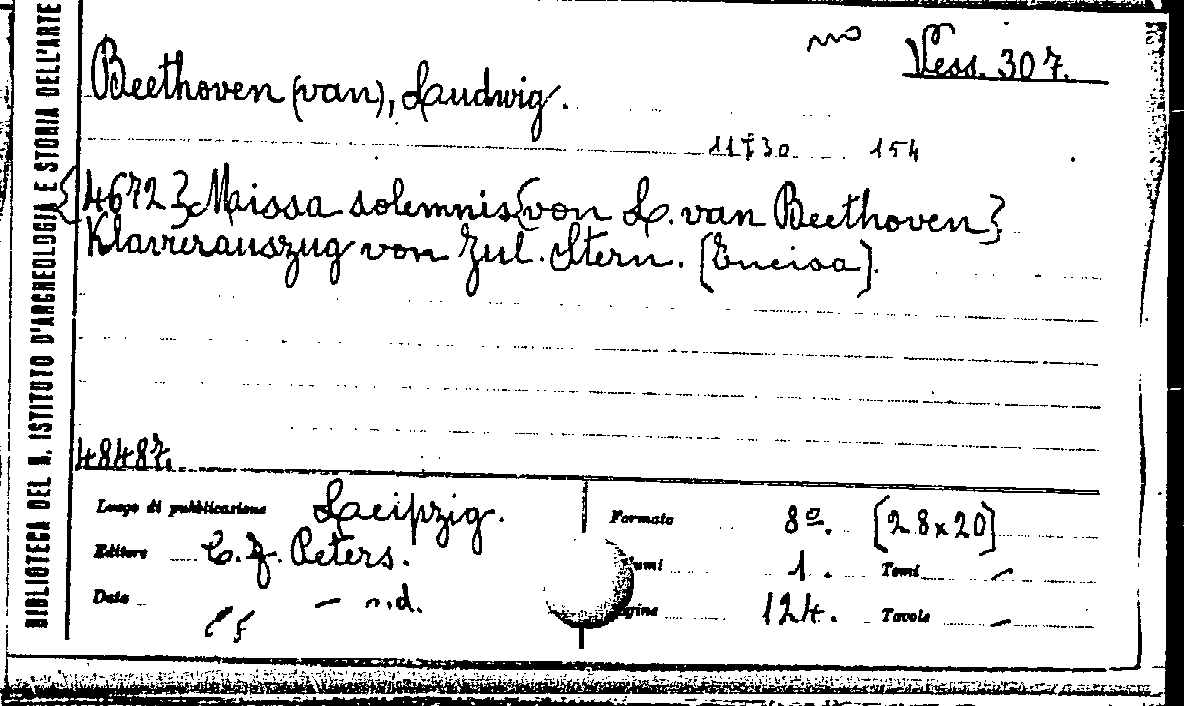 BIBLIOTECA DEL R. ISTITUTO D'ARCHEOLOGIA E STORIA DELL'ARTE
Vess. 307.
Beethoven (van), Ludwig.
154
{4672} Missa solemnis {von L. van Beethoven}
Klavierauszug von Jul. Stern. [Incisa].
48487.
Luogo di pubblicazione Leipzig.
Editore C. F. Peters.
Data – n.d.
Formato 8º. [28x20]
1. Tomi –
124. Tavole –